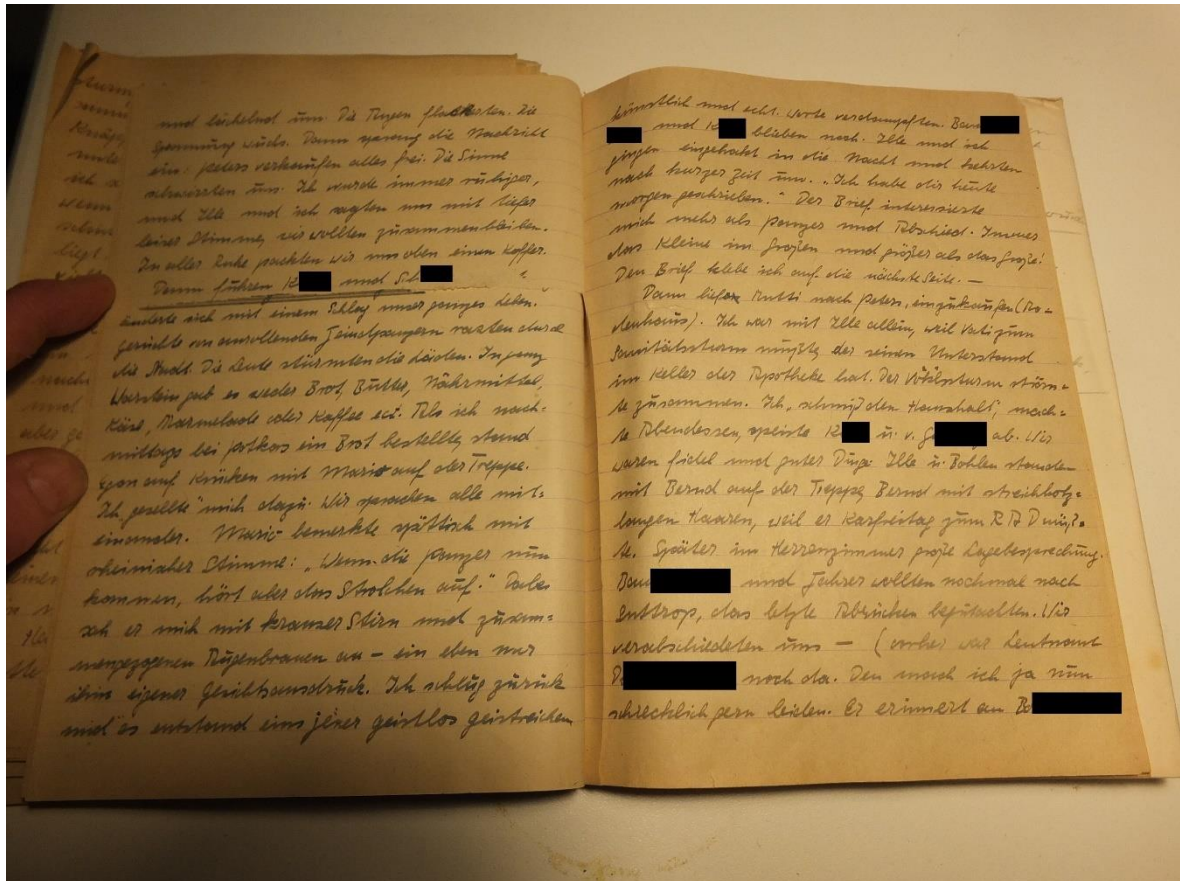 und lächelnd um. Die Augen flackerten. Die
Spannung wuchs. Dann sprang die Nachricht
ein: peters verkaufen alles frei. Die Sinne
schwirrten uns. Ich wurde immer ruhiger,
und Ille und ich sagten uns mit tiefer
leiser Stimme, wir wollten zusammen bleiben.
In aller Ruhe packten wir nun oben einen Koffer.
Dann fuhren K und Sch
änderte sich mit einem Schlag unser ganzes Leben.
Gerüchte von anrollenden Feindpanzern rasten durch
die Stadt. Die Leute stürmten die Läden. In ganz
Warstein gab es weder Brot, Butter, Nährmittel,
Käse, Marmelade oder Kaffee ect. Als ich nach-
mittags bei Potkas ein Brot bestellte, stand
Egon auf Krücken mit Mario auf der Treppe.
Ich gesellte mich dazu. Wir sprachen alle mit-
einander. Mario bemerkte spöttisch mit
rheinischer Stimme: „Wenn die Panzer nun
kommen, hört aber das Strolchen auf." Dabei
sah er mich mit krauser Stirn und zusam-
mengezogenen Augenbrauen an – ein eben nur
ihm eigener Gesichtsausdruck. Ich schlug zurück
und es entstand eins jener geistlos geistreichen
künstlich und echt. Worte verdampften. Bau
und K blieben noch. Ille und ich
gingen eingehakt in die Nacht und kehrten
nach kurzer Zeit um. „Ich habe dir heute
morgen geschrieben." Der Brief interessierte
mich mehr als Panzer und Abschied. Immer
das Kleine im Großen und größer als das große!
Den Brief klebe ich auf die nächste Seite. —
Dann liefen Mutti nach Peters, einzukaufen (Ro-
denhaus). Ich war mit Ille allein, weil Vati zum
Sanitätssturm mußte, der seinen Unterstand
im Keller der Apotheke hat. Der Volkssturm ström-
te zusammen. Ich „schmiß den Haushalt", mach-
te Abendessen, speiste K u. v. G ab. Wir
waren fidel und guter Dinge. Ille u. Bohlen standen
mit Bernd auf der Treppe. Bernd mit streichholz-
langen Haaren, weil er Karfreitag zum RAD muß-
te. Später im Herrenzimmer große Lagebesprechung.
Bau und Jahrer wollten nochmal nach
Enttrop, das letzte Abrücken begutachten. Wir
verabschiedeten uns — (vorher war Leutnant
D noch da. Den mach ich ja nun
schrecklich gern leiden. Er erinnert an Bo